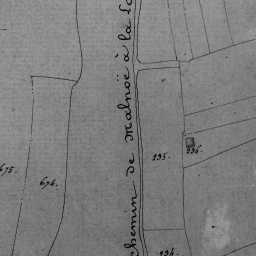 chemin de Malnoë à la
235.
236.
675.
676.
234.